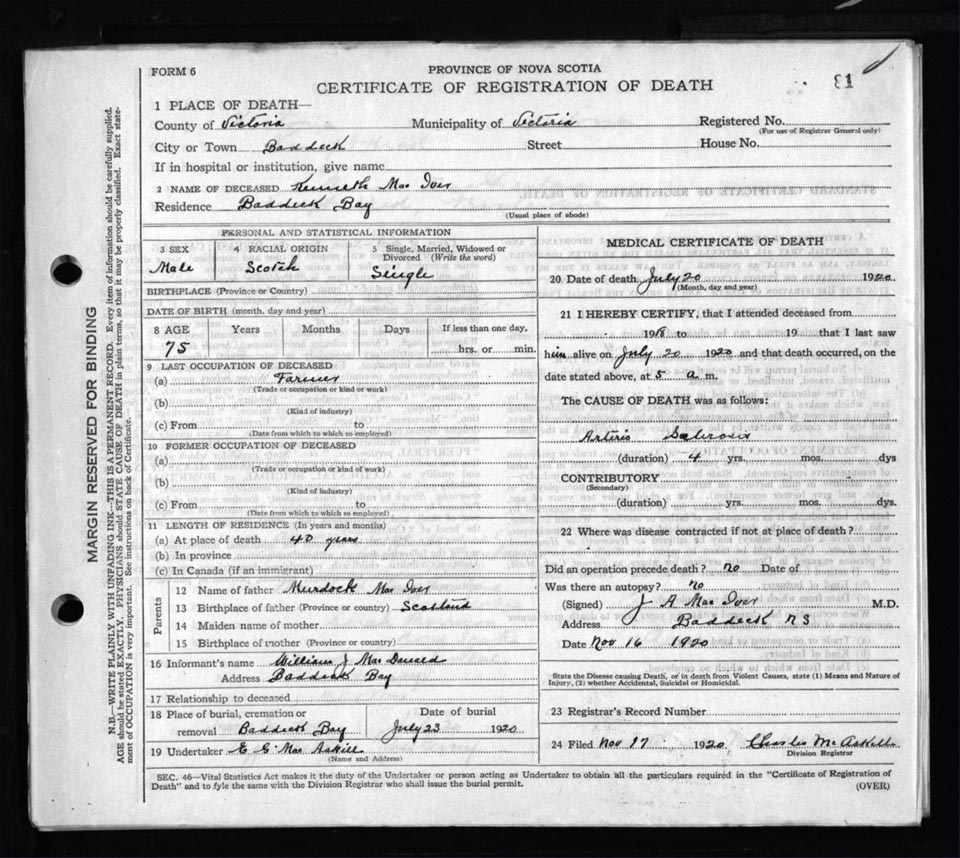 FORM 6
PROVINCE OF NOVA SCOTIA
CERTIFICATE OF REGISTRATION OF DEATH
31
1 PLACE OF DEATH—
County of Victoria Municipality of Victoria Registered No.
(For use of Registrar General only)
City or Town Baddeck Street House No.
If in hospital or institution, give name
2 NAME OF DECEASED Kenneth Mac Iver
Residence Baddeck Bay
(Usual place of abode)
PERSONAL AND STATISTICAL INFORMATION
3 SEX
Male
4 RACIAL ORIGIN
Scotch
5 Single, Married, Widowed or
Divorced (Write the word)
Single
BIRTHPLACE (Province or Country)
DATE OF BIRTH (month, day and year)
8 AGE Years Months Days If less than one day,
75 hrs. or min.
9 LAST OCCUPATION OF DECEASED
(a) Farmer
(Trade or occupation or kind or work)
(b)
(Kind of industry)
(c) From to
(Date from which to which so employed)
10 FORMER OCCUPATION OF DECEASED
(a)
(Trade or occupation or kind of work)
(b)
(Kind of industry)
(c) From to
(Date from which to which so employed)
11 LENGTH OF RESIDENCE (In years and months)
(a) At place of death 40 years
(b) In province
(c) In Canada (if an immigrant)
Parents
12 Name of father Murdock Mac Iver
13 Birthplace of father (Province or country) Scotland
14 Maiden name of mother
15 Birthplace of mother (Province or country)
16 Informant's name William J Mac Donald
Address Baddeck Bay
17 Relationship to deceased
18 Place of burial, cremation or Date of burial
removal Baddeck Bay July 23 1920
19 Undertaker E G Mac Askill
(Name and Address)
MEDICAL CERTIFICATE OF DEATH
20 Date of death July 20 1920
(Month, day and year)
21 I HEREBY CERTIFY, that I attended deceased from
1918 to 19 that I last saw
him alive on July 20 1920 and that death occurred, on the
date stated above, at 5 a m.
The CAUSE OF DEATH was as follows:
Arterio
(duration) 4 yrs. mos. dys
CONTRIBUTORY
(Secondary)
(duration) yrs. mos. dys.
22 Where was disease contracted if not at place of death?
Did an operation precede death? no Date of
Was there an autopsy? no
(Signed) J A Mac Iver M.D.
Address Baddeck N S
Date Nov 16 1920
State the Disease causing Death, or in death from Violent Causes, state (1) Means and Nature of
Injury, (2) whether Accidental, Suicidal or Homicidal.
23 Registrar's Record Number
24 Filed Nov 17 1920 Charles McAskill
Division Registrar
SEC. 46—Vital Statistics Act makes it the duty of the Undertaker or person acting as Undertaker to obtain all the particulars required in the "Certificate of Registration of
Death" and to fyle the same with the Division Registrar who shall issue the burial permit.
(OVER)
MARGIN RESERVED FOR BINDING
N.B.—WRITE PLAINLY WITH UNFADING INK—THIS IS A PERMANENT RECORD. Every item of information should be carefully supplied.
AGE should be stated EXACTLY. PHYSICIANS should STATE CAUSE OF DEATH in plain terms, so that it may be properly classified. Exact state-
ment of OCCUPATION is very important. See instructions on back of Certificate.